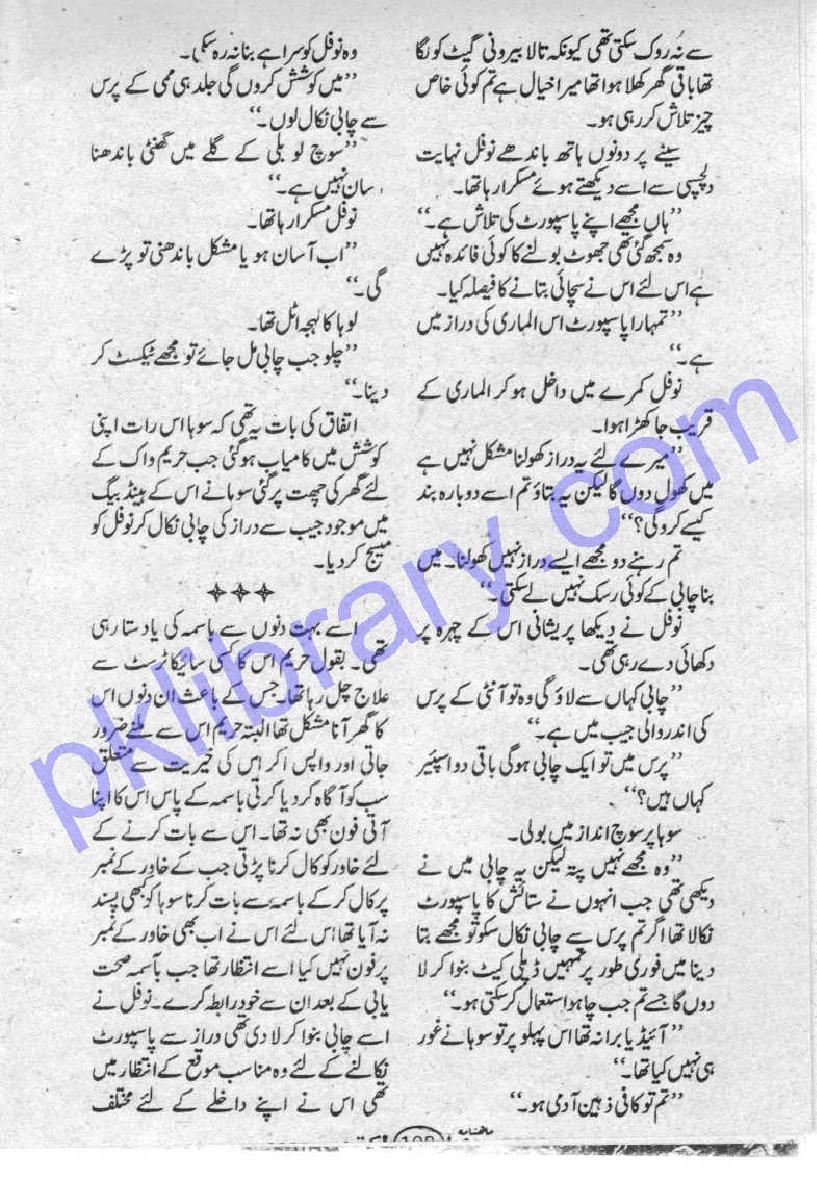 سے نُہ روک سکتی تھی کیونکہ تالا بیرونی گیٹ کو لگا
تھا باقی گھر کھلا ہوا تھا میرا خیال ہے تم کوئی خاص
چیز تلاش کر رہی ہو۔
سینے پر دونوں ہاتھ باندھے نوفل نہایت
دلچسپی سے اسے دیکھتے ہوئے مسکرا رہا تھا۔
”ہاں مجھے اپنے پاسپورٹ کی تلاش ہے۔“
وہ سمجھ گئی تھی جھوٹ بولنے کا کوئی فائدہ نہیں
ہے اس لئے اس نے سچائی بتانے کا فیصلہ کیا۔
”تمہارا پاسپورٹ اس الماری کی دراز میں
ہے۔“
نوفل کمرے میں داخل ہو کر الماری کے
قریب جا کھڑا ہوا۔
”میرے لئے یہ دراز کھولنا مشکل نہیں ہے
میں کھول دوں گا لیکن یہ بتاؤ تم اسے دوبارہ بند
کیسے کرو گی؟“
تم رہنے دو مجھے ایسے دراز نہیں کھولنا۔ میں
بنا چابی کے کوئی رسک نہیں لے سکتی۔“
نوفل نے دیکھا پریشانی اس کے چہرہ پر
دکھائی دے رہی تھی۔
”چابی کہاں سے لاؤ گی وہ تو آنٹی کے پرس
کی اندر والی جیب میں ہے۔“
”پرس میں تو ایک چابی ہوگی باقی دو اسپئیر
کہاں ہیں؟“
سوہا پر سوچ انداز میں بولی۔
”وہ مجھے نہیں پتہ لیکن یہ چابی میں نے
دیکھی تھی جب انہوں نے ستائش کا پاسپورٹ
نکالا تھا اگر تم پرس سے چابی نکال سکو تو مجھے بتا
دینا میں فوری طور پر تمہیں ڈپلی کیٹ بنوا کر لا
دوں گا جسے تم جب چاہو استعمال کر سکتی ہو۔“
”آئیڈیا برا نہ تھا اس پہلو پر تو سوہا نے غور
ہی نہیں کیا تھا۔“
”تم تو کافی ذہین آدمی ہو۔“
وہ نوفل کو سراہے بنا نہ رہ سکی۔
”میں کوشش کروں گی جلد ہی ممی کے پرس
سے چابی نکال لوں۔“
”سوچ لو بلی کے گلے میں گھنٹی باندھنا
سان نہیں ہے۔“
نوفل مسکرا رہا تھا۔
”اب آسان ہو یا مشکل باندھنی تو پڑے
گی۔“
لوہا کا لہجہ اٹل تھا۔
”چلو جب چابی مل جائے تو مجھے ٹیکسٹ کر
دینا۔“
اتفاق کی بات یہ تھی کہ سوہا اس رات اپنی
کوشش میں کامیاب ہو گئی جب حریم واک کے
لئے گھر کی چھت پر گئی سوہا نے اس کے ہینڈ بیگ
میں موجود جیب سے دراز کی چابی نکال کر نوفل کو
میسج کر دیا۔
✧✧✧
اسے بہت دنوں سے باسمہ کی یاد ستا رہی
تھی۔ بقول حریم اس کا کسی سائیکاٹرسٹ سے
علاج چل رہا تھا۔ جس کے باعث ان دنوں اس
کا گھر آنا مشکل تھا البتہ حریم اس سے ملنے ضرور
جاتی اور واپس آکر اس کی خیریت سے متعلق
سب کو آگاہ کر دیا کرتی باسمہ کے پاس اس کا اپنا
آئی فون بھی نہ تھا۔ اس سے بات کرنے کے
لئے خاور کو کال کرنا پڑتی جب کے خاور کے نمبر
پر کال کر کے باسمہ سے بات کرنا سوہا کو کبھی پسند
نہ آیا تھا اس لئے اس نے اب بھی خاور کے نمبر
پر فون نہیں کیا اسے انتظار تھا جب باسمہ صحت
یابی کے بعد ان سے خود رابطہ کرے۔ نوفل نے
اسے چابی بنوا کر لا دی تھی دراز سے پاسپورٹ
نکالنے کے لئے وہ مناسب موقع کے انتظار میں
تھی اس نے اپنے داخلے کے لئے مختلف
pklibrary.com
ماہنامہ